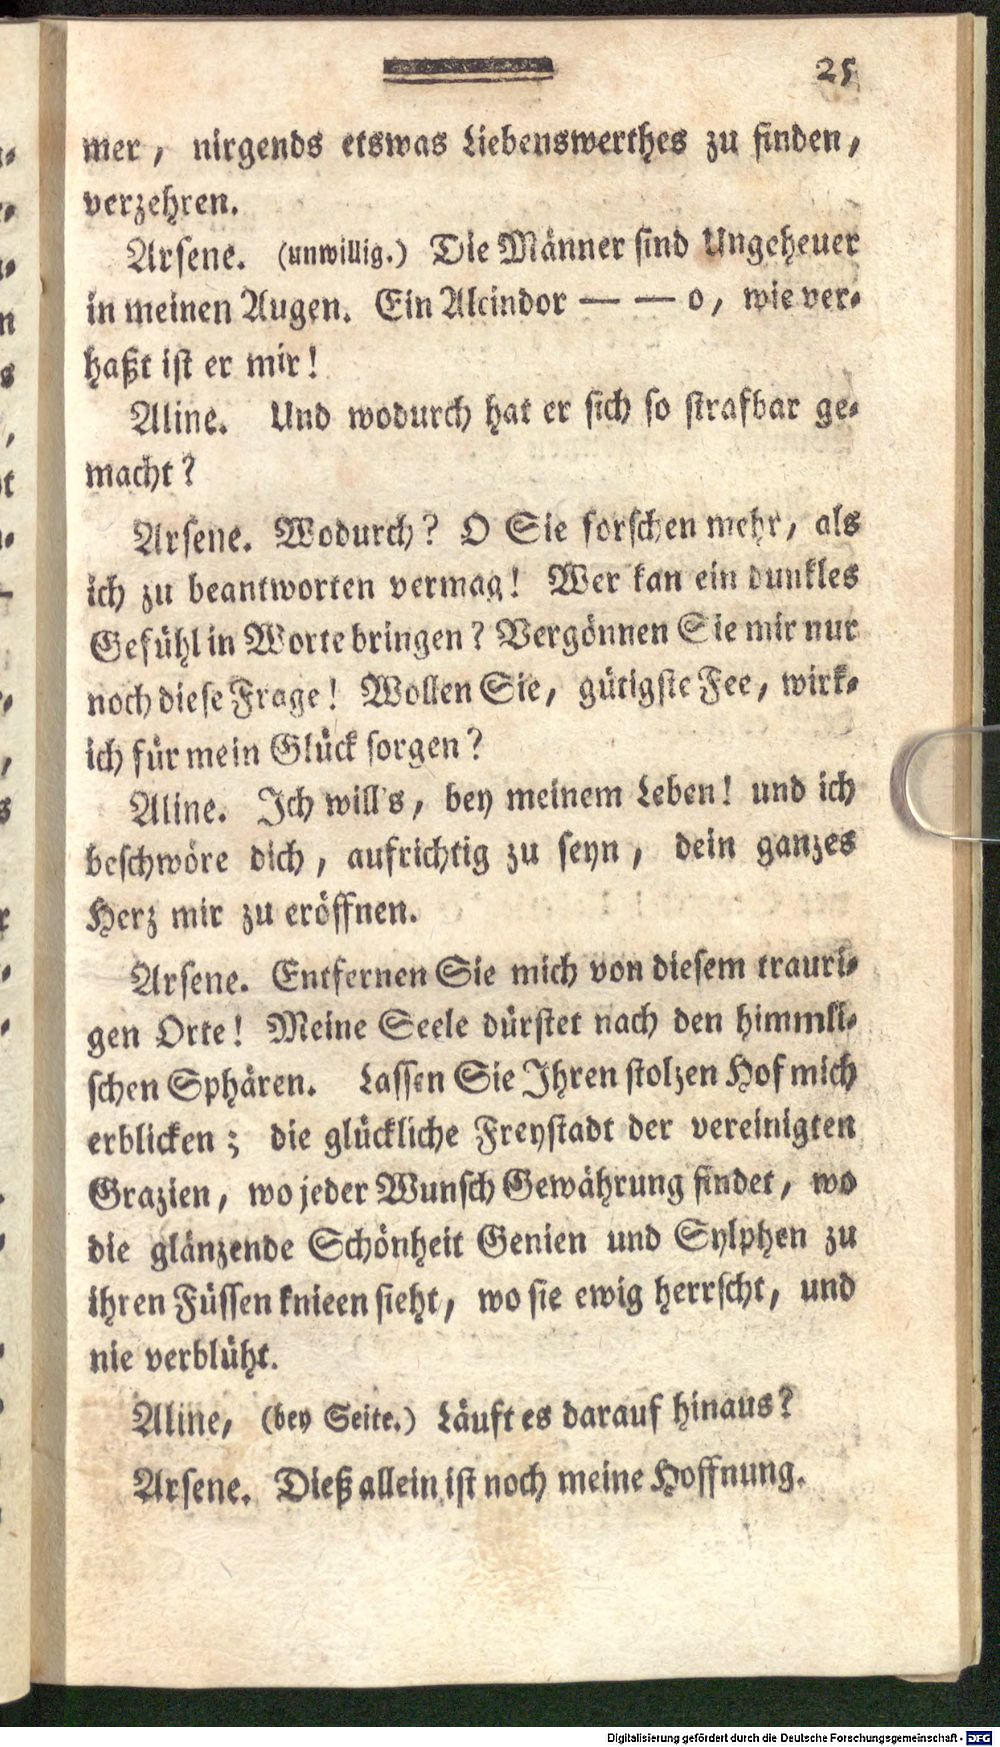 25
mer, nirgends etswas Liebenswerthes zu finden,
verzehren.
Arsene. (unwillig.) Die Männer sind Ungeheuer
in meinen Augen. Ein Alcindor — — o, wie ver-
haßt ist er mir!
Aline. Und wodurch hat er sich so strafbar ge-
macht?
Arsene. Wodurch? O Sie forschen mehr, als
ich zu beantworten vermag! Wer kan ein dunkles
Gefühl in Worte bringen? Vergönnen Sie mir nur
noch diese Frage! Wollen Sie, gütigste Fee, wirk-
ich für mein Glück sorgen?
Aline. Ich will's, bey meinem Leben! und ich
beschwöre dich, aufrichtig zu seyn, dein ganzes
Herz mir zu eröffnen.
Arsene. Entfernen Sie mich von diesem trauri-
gen Orte! Meine Seele dürstet nach den himmli-
schen Sphären. Lassen Sie Ihren stolzen Hof mich
erblicken; die glückliche Freystadt der vereinigten
Grazien, wo jeder Wunsch Gewährung findet, wo
die glänzende Schönheit Genien und Sylphen zu
ihren Füssen knieen sieht, wo sie ewig herrscht, und
nie verblüht.
Aline, (bey Seite.) Läuft es darauf hinaus?
Arsene. Dieß allein ist noch meine Hoffnung.
Digitalisierung gefördert durch die Deutsche Forschungsgemeinschaft - DFG